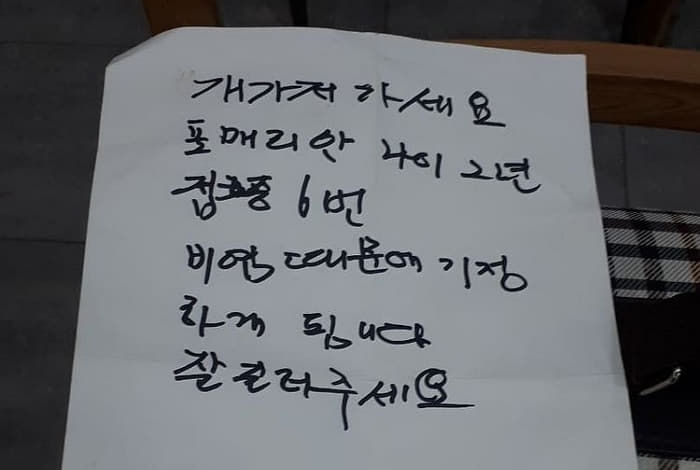 개가저 가세요
포매리안 나이 2년
접종 6번
비염 때문에 기정
하게 됩니다
잘 길러주세요